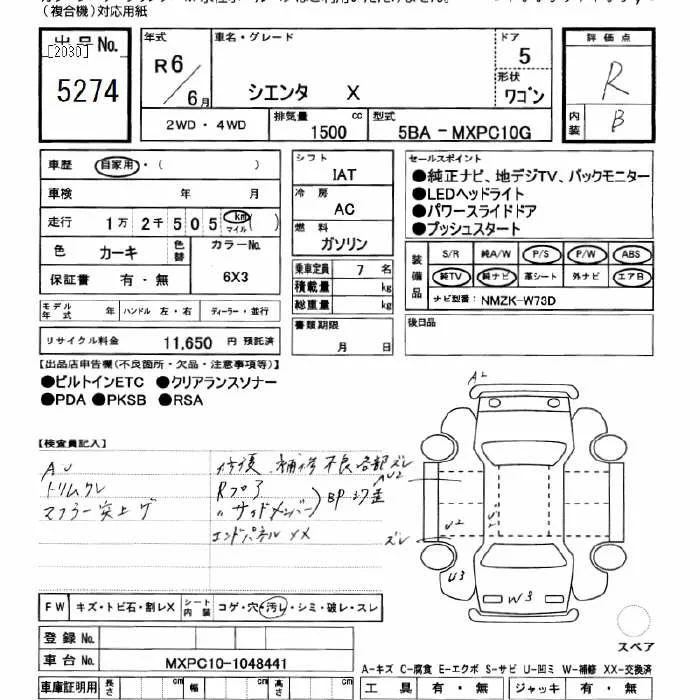 (複合機)対応用紙
出品No.
[2030]
5274
年式
R6
6月
車名・グレード
シエンタ X
ドア
5
形状
ワゴン
評価点
R
内装
B
2WD・4WD
排気量
1500 cc
型式
5BA-MXPC10G
車歴
自家用・( )
車検 年 月
走行 1万2千505 km マイル ( )
色 カーキ
色替
カラーNo.
6X3
保証書 有・無
モデル年式 年 ハンドル 左・右 ディーラー・並行
リサイクル料金 11,650 円 預託済
シフト
IAT
冷房
AC
燃料
ガソリン
乗車定員 7 名
積載量 kg
総重量 kg
書類期限
月 日
セールスポイント
●純正ナビ、地デジTV、バックモニター
●LEDヘッドライト
●パワースライドドア
●プッシュスタート
装備品
S/R 純A/W P/S P/W ABS
純TV 純ナビ 革シート 外ナビ エアB
ナビ型番: NMZK-W73D
後日品
【出品店申告欄(不良箇所・欠品・注意事項等)】
●ビルトインETC ●クリアランスソナー
●PDA ●PKSB ●RSA
【検査員記入】
AU
トリムクレ
マフラー突上ゲ
修復、補修不良各部ズレ
Rフロア
〃サイドメンバー) BP
エンドパネル XX
A2
AU2
U2
ズレ
U3
W3
スペア
FW キズ・トビ石・割レX
シート内装 コゲ・穴・汚レ・シミ・破レ・スレ
登録No.
車台No. MXPC10-1048441
車庫証明用 長さ cm 幅 cm 高さ cm
A-キズ C-腐食 E-エクボ S-サビ U-凹ミ W-補修 XX-交換済
工具 有・無 ジャッキ 有・無